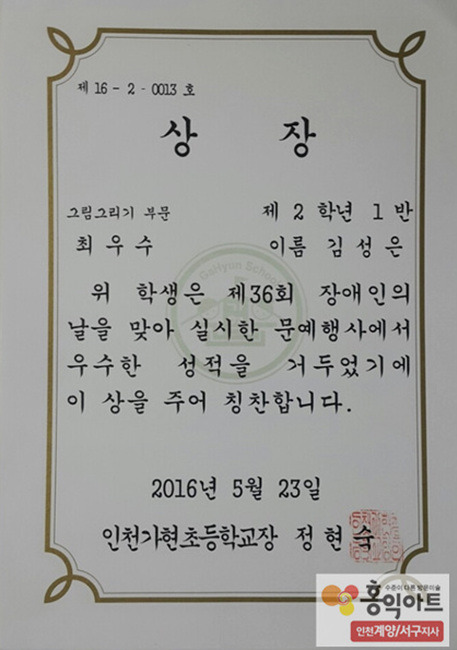 제 16 - 2 - 0013 호
상 장
그림그리기 부문 제 2 학년 1 반
최우수 이름 김성은
GaHyun School
위 학생은 제36회 장애인의
날을 맞아 실시한 문예행사에서
우수한 성적을 거두었기에
이 상을 주어 칭찬합니다.
2016년 5월 23일
인천가현초등학교장 정현숙
수준이 다른 방문미술
홍익아트
인천계양/서구지사